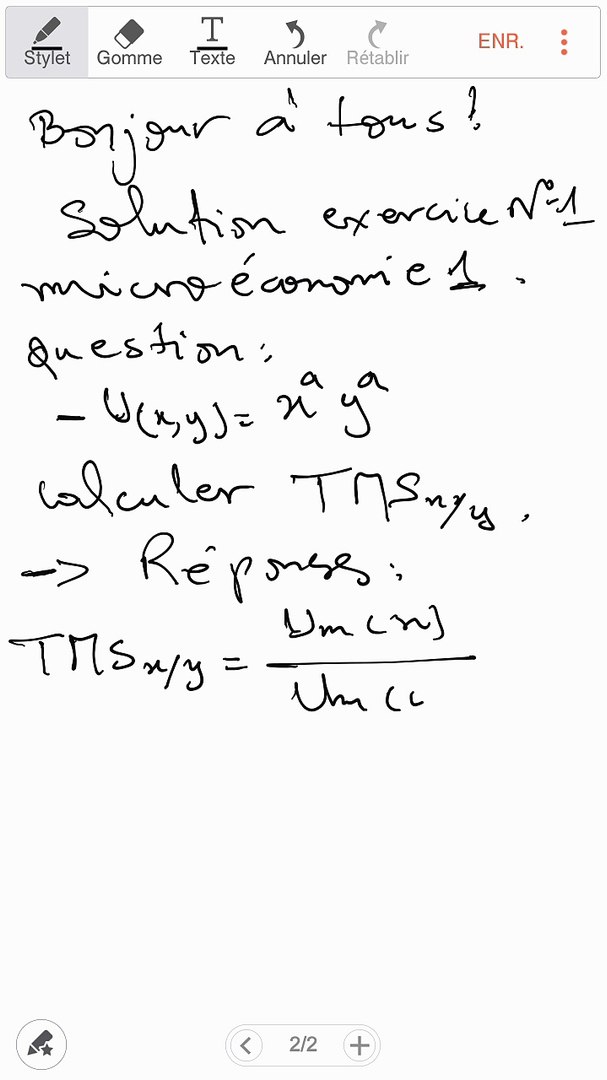 Stylet Gomme Texte Annuler Rétablir ENR.
Bonjour à tous!
Solution exercice N°1
microéconomie 1.
question:
- U(x,y)= x^a y^a
calculer TMSx/y.
-> Réponses:
TMSx/y = Um(x)
Um(c
2/2